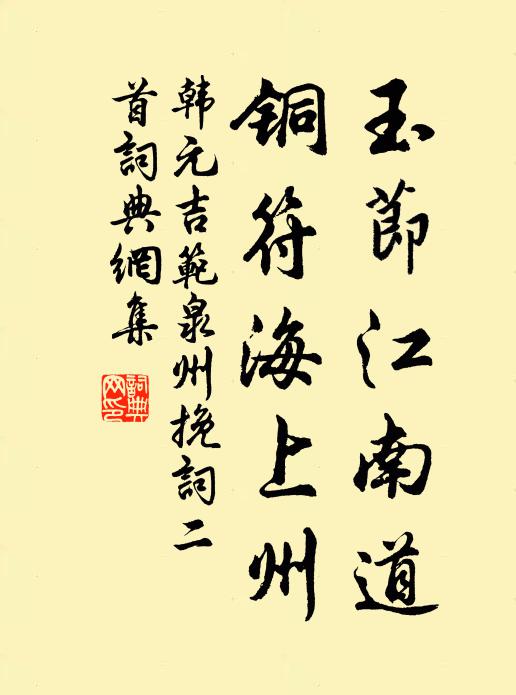 玉節江南道
铜符海上州
韩元吉範泉州挽詞二
首詞典網集
詞典
网印